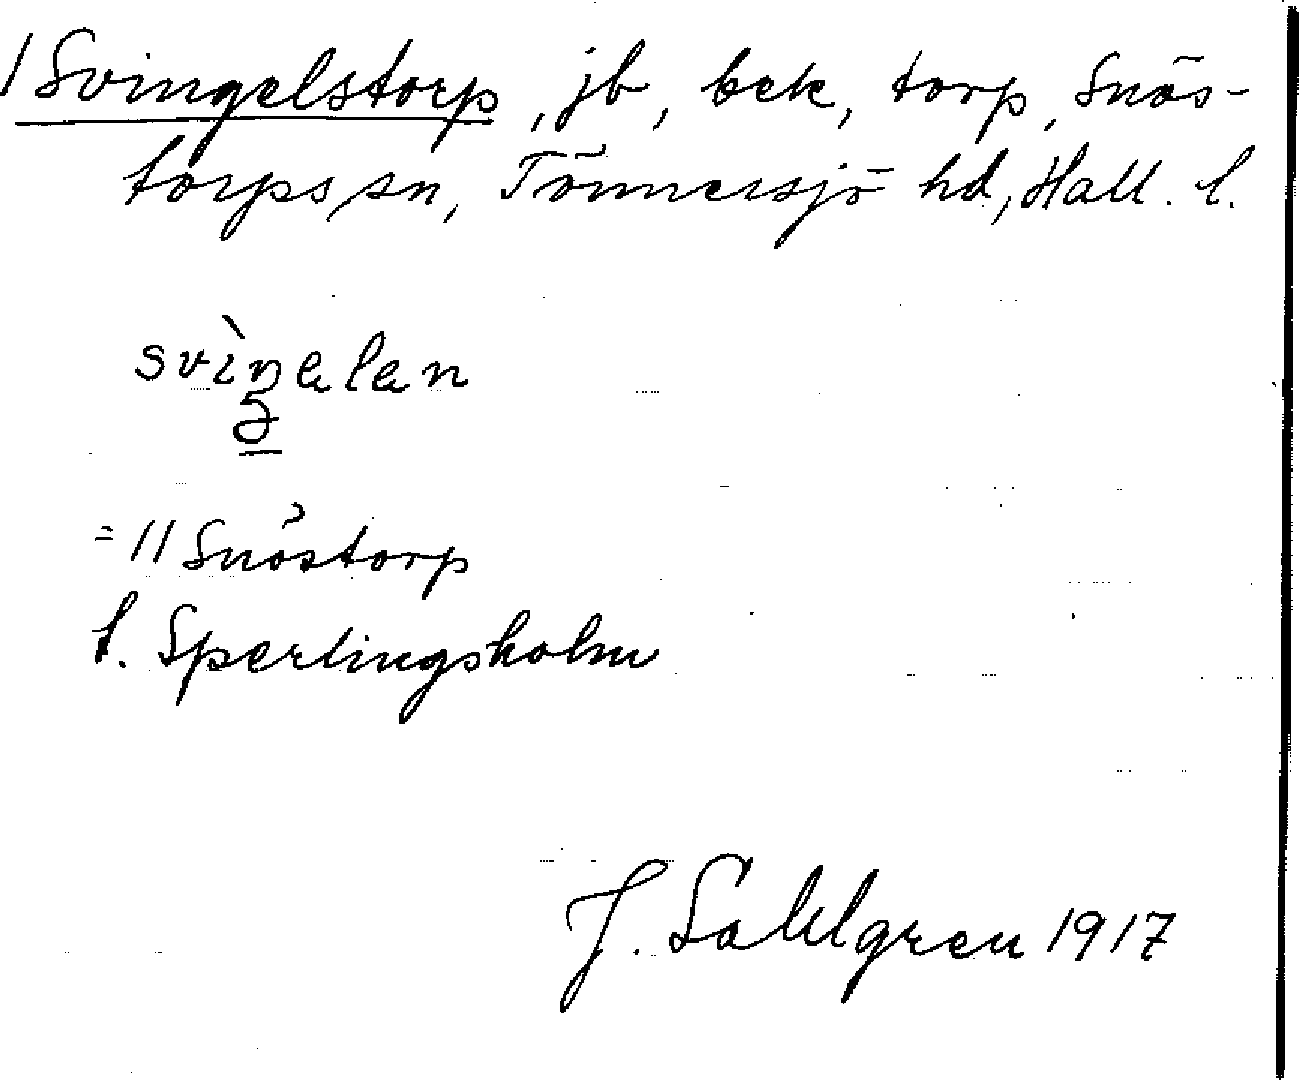 /Svingelstorp, jb, bek, torp, Snös-
torps sn, Tönnersjö hd, Hall. l.
svìŋɐlɐn
=//Snöstorp
t. Sperlingsholm
J. Sahlgren 1917